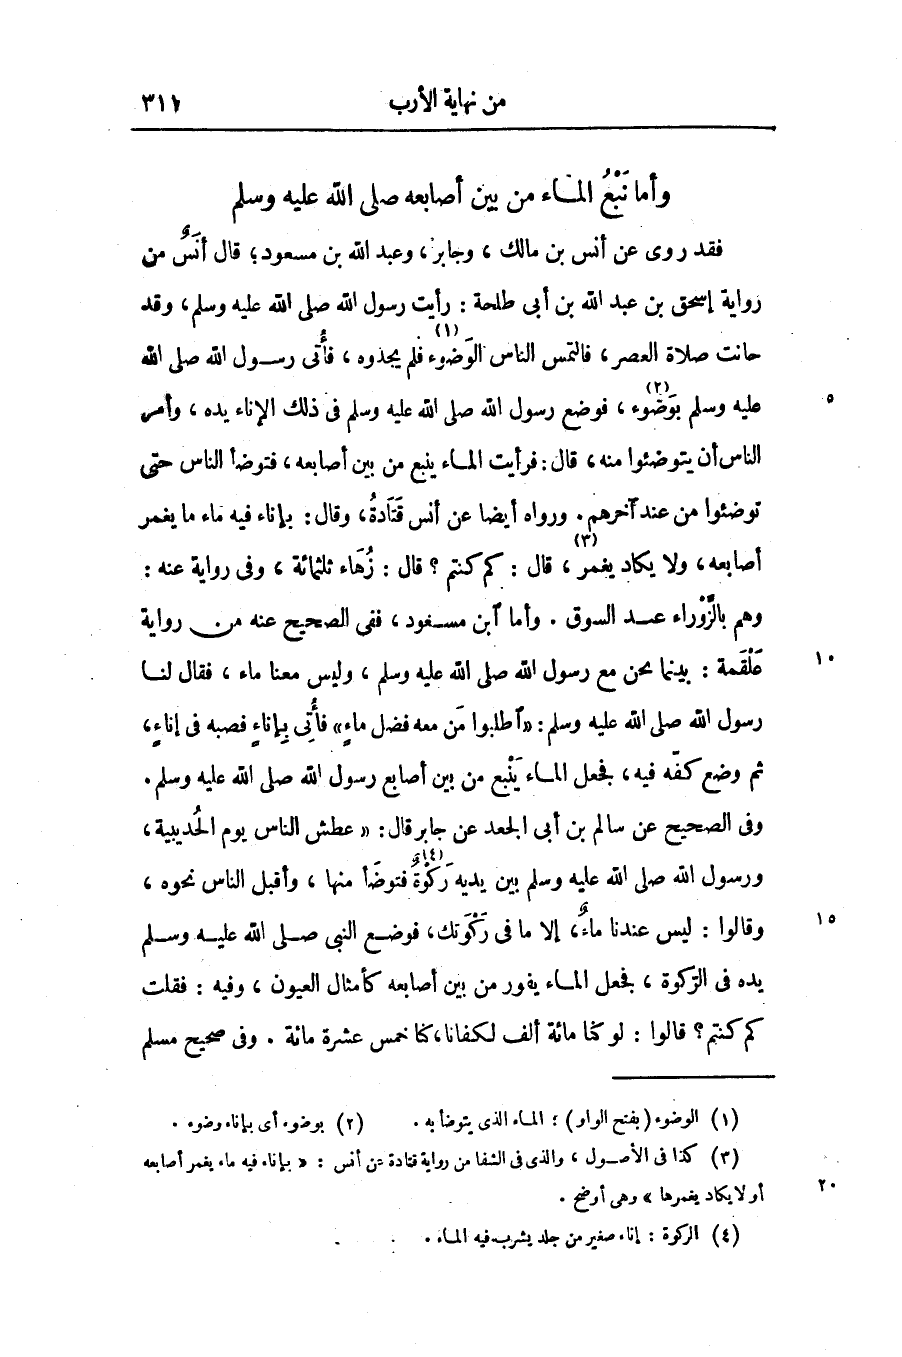 من نهاية الأرب ٣١١
وأما نَبْعُ الماء من بين أصابعه صلى الله عليه وسلم
فقد روى عن أنس بن مالك ، وجابر ، وعبد الله بن مسعود ؛ قال أنَسٌ من
رواية إسحق بن عبد الله بن أبى طلحة : رأيت رسول الله صلى الله عليه وسلم ، وقد
حانت صلاة العصر ، فالتمس الناس الوَضُوء (١) فلم يجدوه ، فأُتى رسول الله صلى الله
عليه وسلم بوَضُوء (٢) ، فوضع رسول الله صلى الله عليه وسلم فى ذلك الإناء يده ، وأمر ٥
الناس أن يتوضئوا منه ، قال : فرأيت الماء ينبع من بين أصابعه ، فتوضأ الناس حتى
توضئوا من عند آخرهم . ورواه أيضا عن أنس قَتَادةُ ، وقال : بإناء فيه ماء ما يغمر
أصابعه ، ولا يكاد يغمر (٣) ، قال : كم كنتم ؟ قال : زُهَاء ثلثمائة ، وفى رواية عنه :
وهم بالزَّوْراء عند السوق . وأما ٱبن مسعود ، ففى الصحيح عنه من رواية
عَلْقَمة : بينما نحن مع رسول الله صلى الله عليه وسلم ، وليس معنا ماء ، فقال لنا ١٠
رسول الله صلى الله عليه وسلم : «ٱطلبوا مَن معه فضل ماءٍ» فأُتِى بإناءٍ فصبه فى إناءٍ ،
ثم وضع كفّه فيه ، فجعل الماء يَنْبع من بين أصابع رسول الله صلى الله عليه وسلم .
وفى الصحيح عن سالم بن أبى الجعد عن جابر قال : « عطش الناس يوم الحُديبية ،
ورسول الله صلى الله عليه وسلم بين يديه رَكْوَةٌ (٤) فتوضَأ منها ، وأقبل الناس نحوه ،
وقالوا : ليس عندنا ماءٌ ، إلا ما فى رَكْوَتك ، فوضع النبى صلى الله عليه وسلم ١٥
يده فى الرَّكوة ، فجعل الماء يفور من بين أصابعه كأمثال العيون ، وفيه : فقلت
كم كنتم ؟ قالوا : لو كنا مائة ألف لكفانا ، كنا خمس عشرة مائة . وفى صحيح مسلم
(١) الوضوء (بفتح الواو) : الماء الذى يتوضأ به . (٢) بوضوء أى بإناء وضوء .
(٣) كذا فى الأصول ، والذى فى الشفا من رواية قتادة عن أنس : « بإناء فيه ماء يغمر أصابعه
أو لا يكاد يغمرها » وهى أوضح . ٢٠
(٤) الركوة : إناء صغير من جلد يشرب فيه الماء .